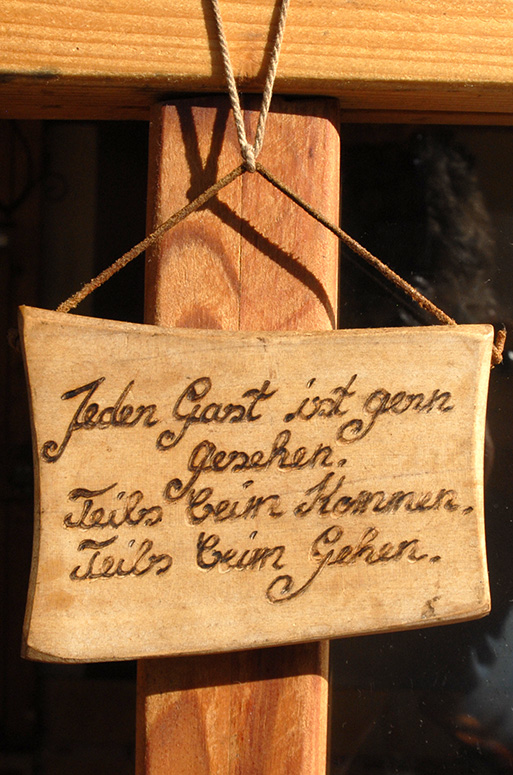 Jeden Gast ist gern
gesehen.
Teils beim Kommen.
Teils beim Gehen.